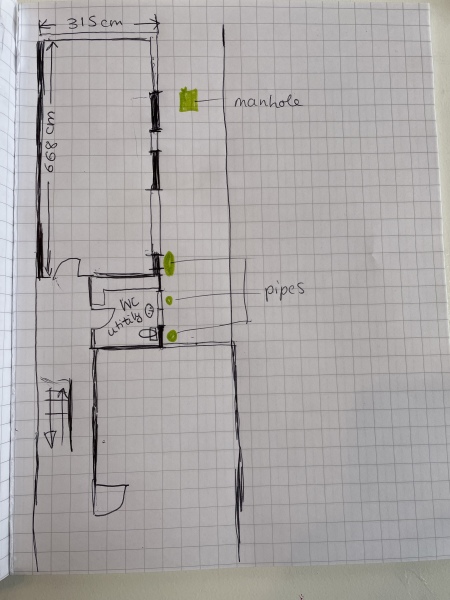 315cm
manhole
668 cm
pipes
WC
utility